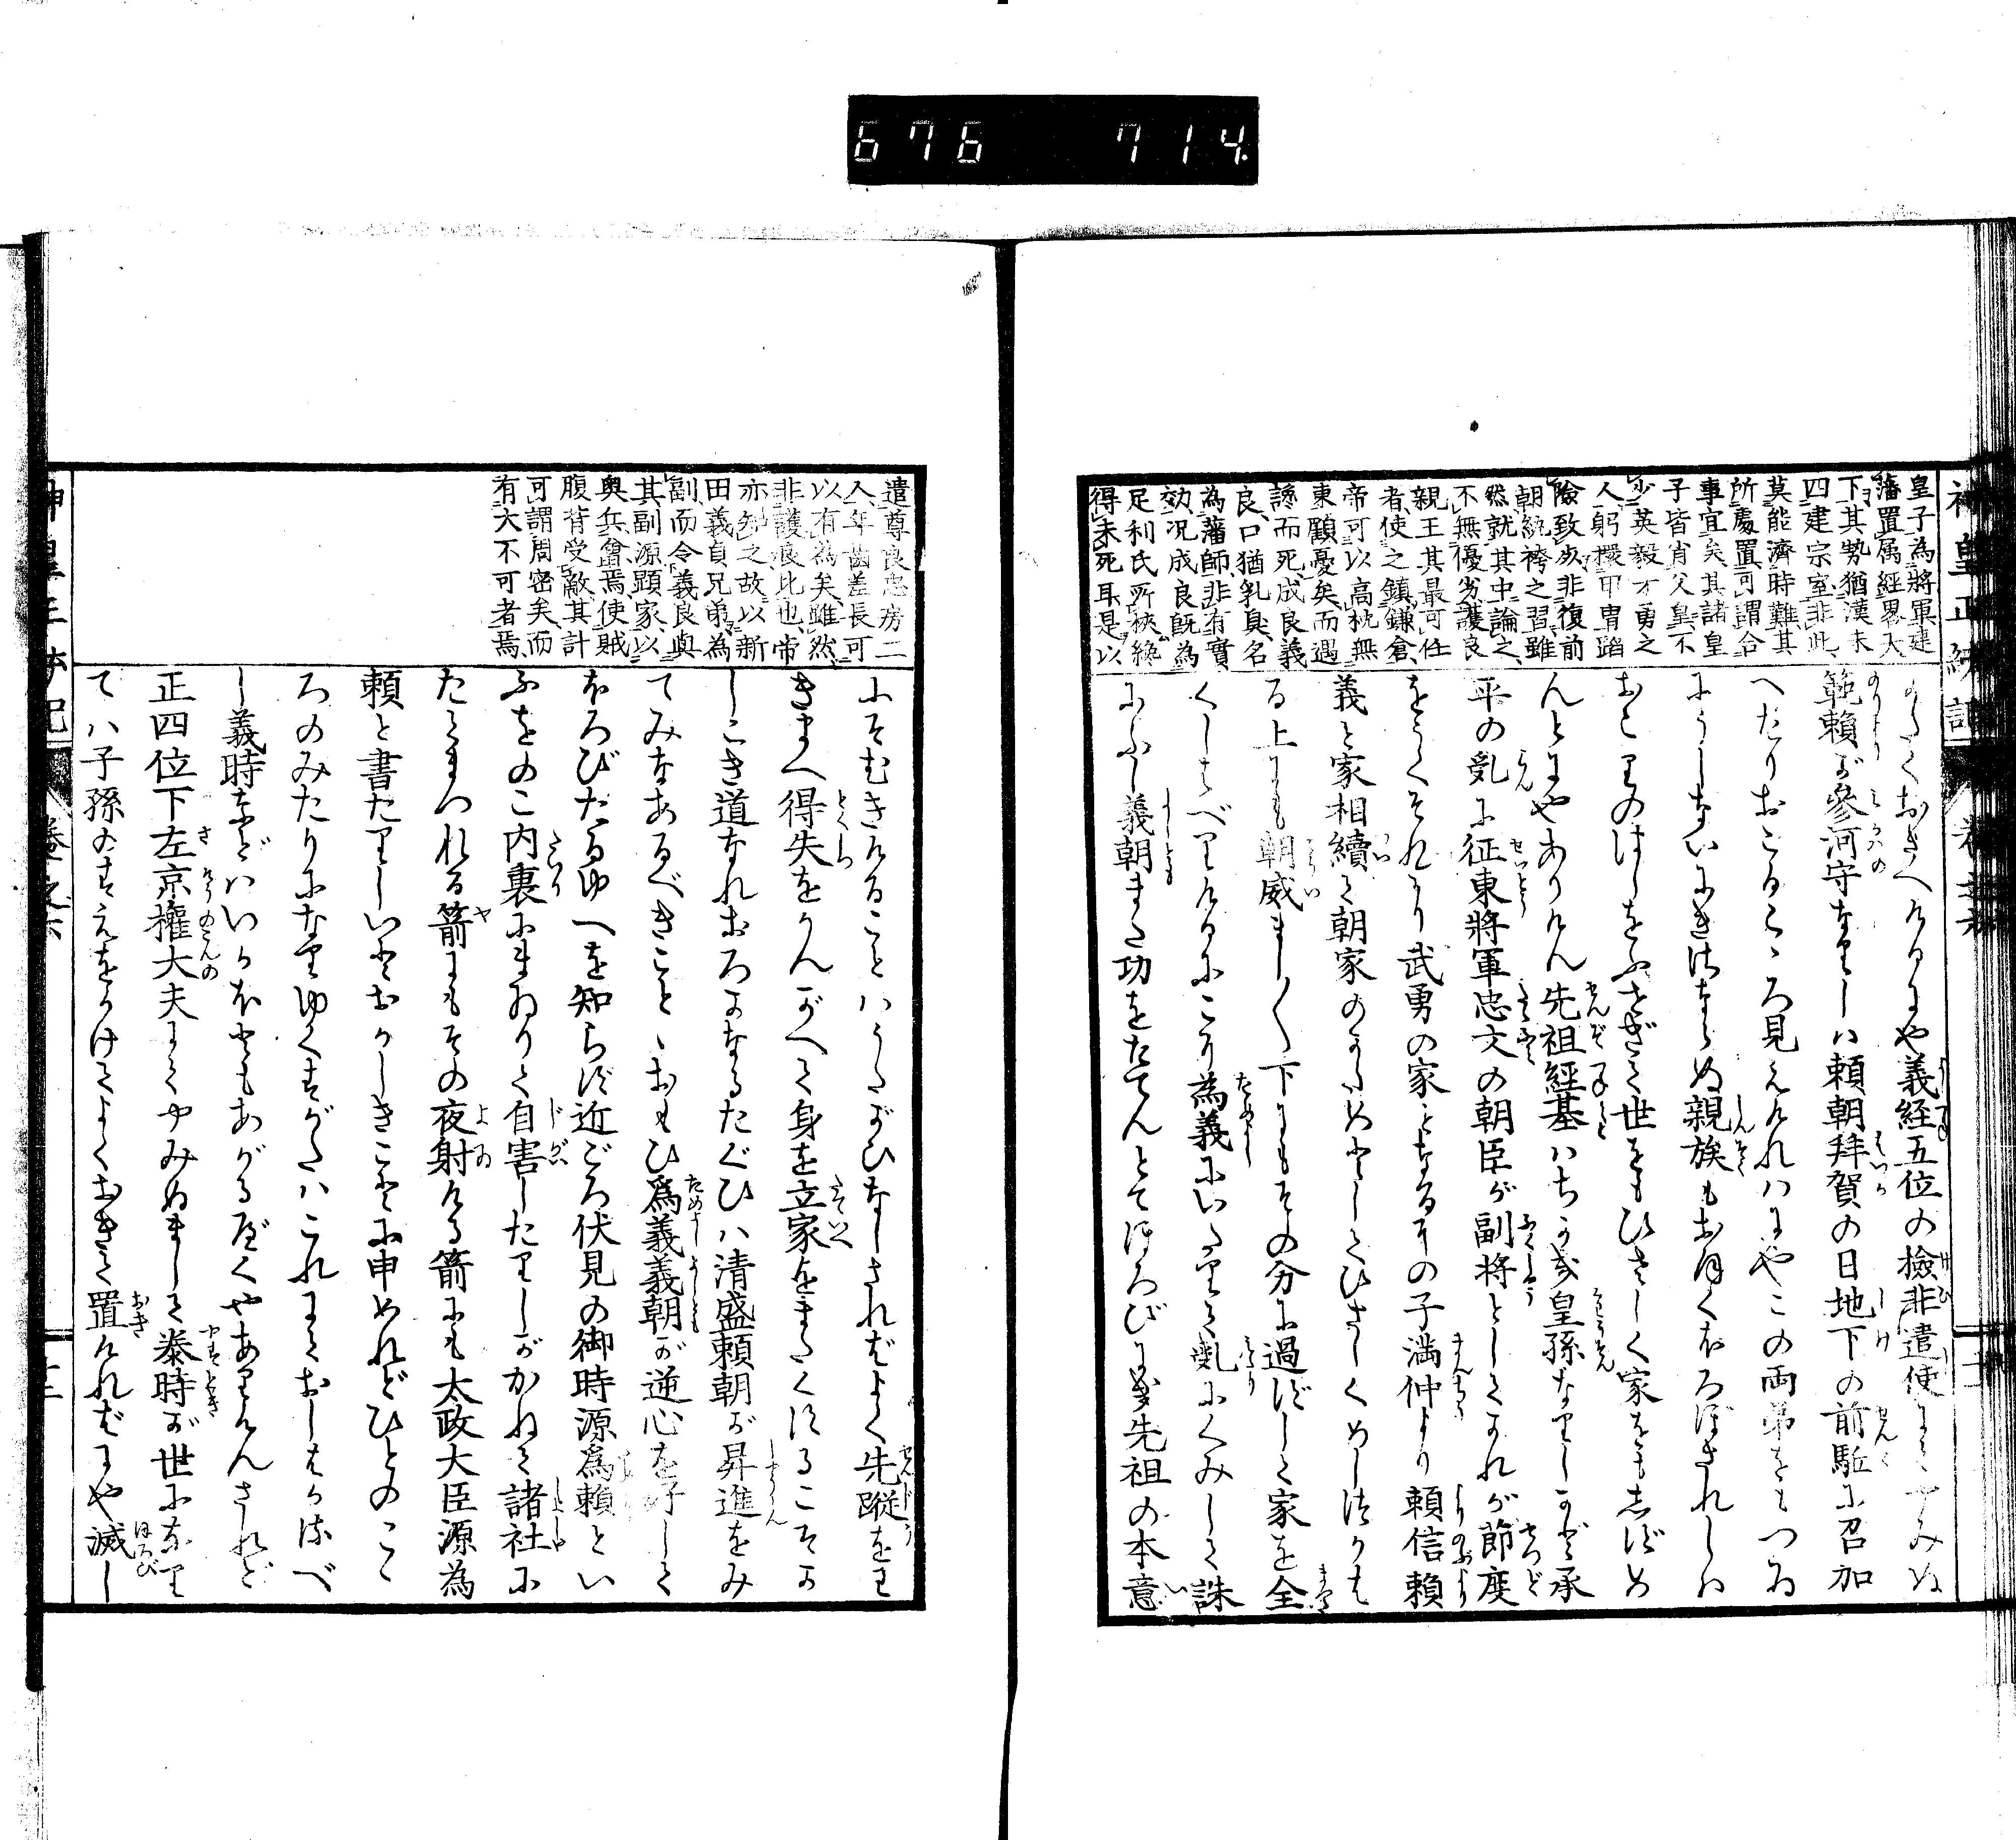 676 714
神皇正統記
皇子為將軍建
藩置属經畧天
下其勢猶漢末
四建宗室非此
莫能濟時難其
所處置可謂合
事宜矣其諸皇
子皆肖父皇不
少英毅才勇之
人躬擐甲冑蹈
險致死非復前
朝紈袴之習雖
然就其中論之
不無優劣護良
親王其最可任
者使之鎮鎌倉
帝可以高枕無
東顧憂矣而遇
讒而死成良義
良口猶乳臭名
為藩師非有實
効况成良既為
足利氏所挾纔
得未死耳是以
かたくおきへけるにや義経五位の檢非違使にてやみぬ
範賴が參河守なりしハ賴朝拜賀の日地下の前駈に召加
へたりおこるこゝろ見えけれハにやこの両弟をもつゐ
にうしなひにきさならぬ親族もおほくほろぼされしハ
おこりのはしをふせぎて世をもひさしく家をもしづめ
んとにやありけん先祖經基ハちかき皇孫なりしかど承
平の乱に征東將軍忠文の朝臣が副将としてかれが節度
をうくそれより武勇の家となるその子満仲より賴信賴
義と家相續て朝家のかためとしてひさしくめしつかは
る上にも朝威ましく下にもその分に過ずして家を全
くしはべりけるにこり為義にいたりて亂にくみして誅
にふし義朝また功をたてんとてほろびにき先祖の本意
遣尊良忠房二
人年齒差長可
以有為矣雖然
非護良比也帝
亦知之故以新
田義貞兄弟為
副而令義良與
其副源顕家以
奥兵會焉使賊
腹背受敵其計
可謂周密矣而
有大不可者焉
にそむきけることハうたがひなしされバよく先蹤をわ
きまへ得失をかんがへて身を立家をまたくするこそか
しこき道なれおろかなるたぐひハ清盛賴朝が昇進をみ
てみなあるべきことゝおもひ為義義朝が逆心を好して
ほろびたるゆへを知らず近ごろ伏見の御時源為賴とい
ふをのこ内裏にまゐりて自害したりしがかねて諸社に
たてまつれる箭にもその夜射ける箭にも太政大臣源為
賴と書たりしいとおかしきことに申めれどひとのこゝ
ろのみたりになりゆくすがたハこれにておしはかるべ
し義時などハいかほどもあがるべくやありけんされど
正四位下左京權大夫にてやみぬまして泰時が世になり
てハ子孫のすえをかけてよくおきて置ければにや滅し